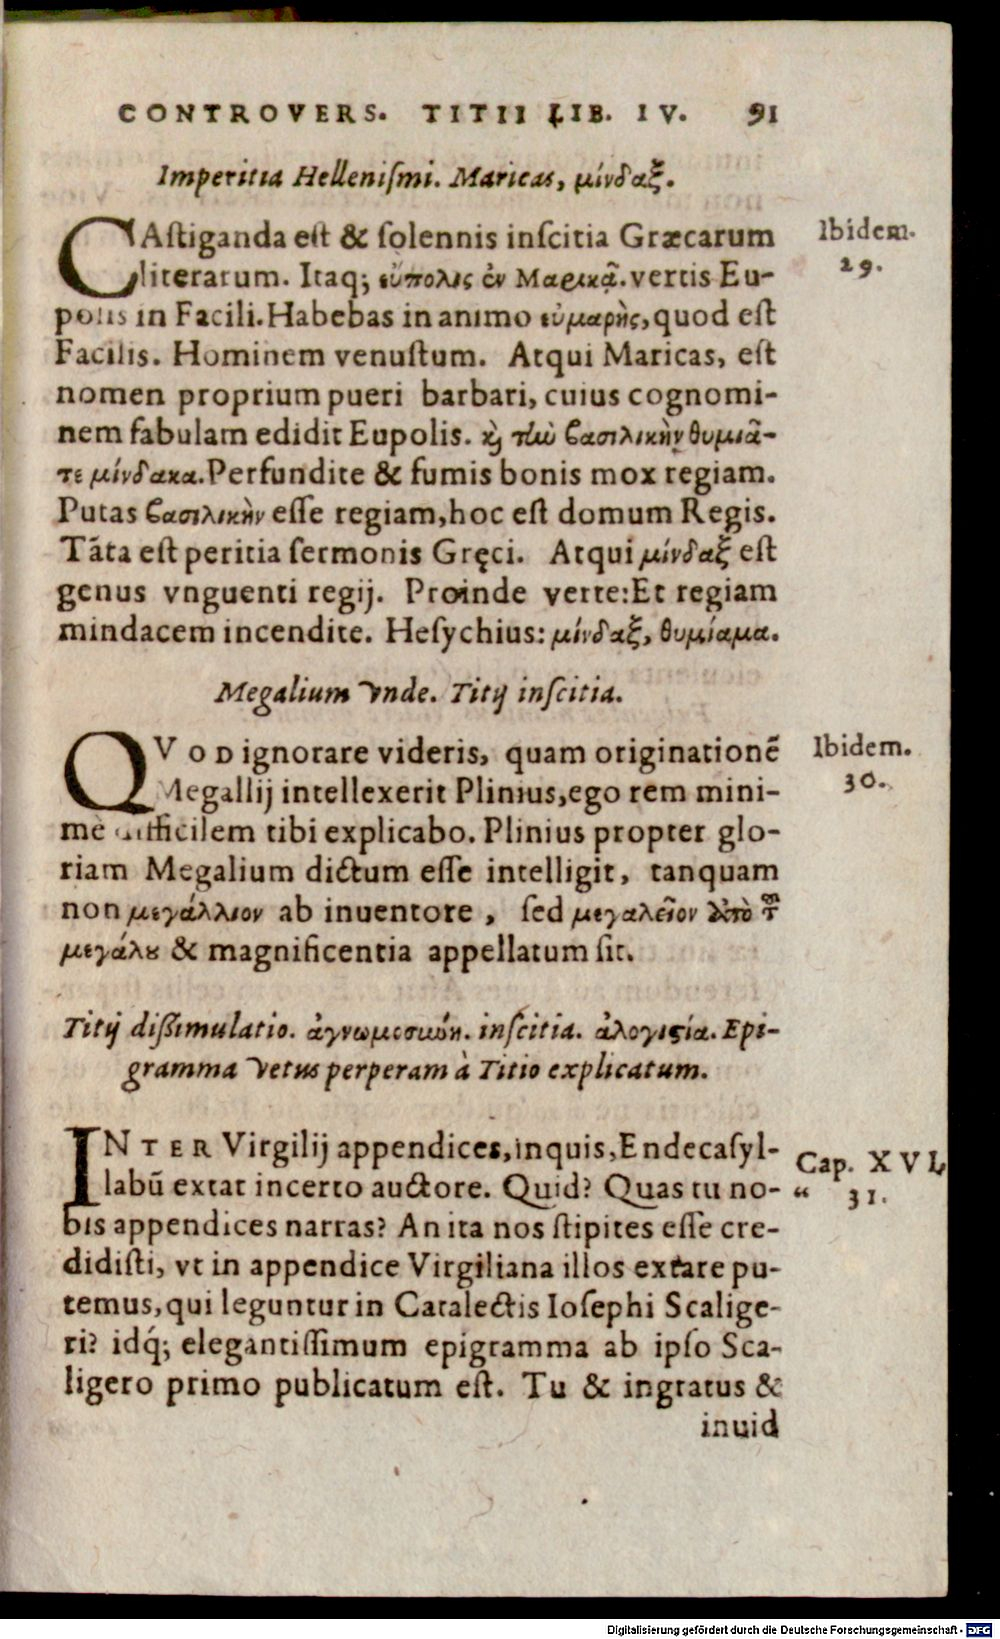 CONTROVERS. TITII LIB. IV. 91
Imperitia Helleniſmi. Maricas, μίνδαξ.
CAſtiganda eſt & ſolennis inſcitia Græcarum
literarum. Itaq; εὔπολις ἐν Μαρικᾷ. vertis Eu-
polis in Facili. Habebas in animo εὐμαρὴς, quod eſt
Facilis. Hominem venuſtum. Atqui Maricas, eſt
nomen proprium pueri barbari, cuius cognomi-
nem fabulam edidit Eupolis. καὶ τὼ βασιλικὴν θυμιᾶ-
τε μίνδακα. Perfundite & fumis bonis mox regiam.
Putas βασιλικὴν eſſe regiam, hoc eſt domum Regis.
Tāta eſt peritia ſermonis Gręci. Atqui μίνδαξ eſt
genus vnguenti regij. Proinde verte: Et regiam
mindacem incendite. Heſychius: μίνδαξ, θυμίαμα.
Ibidem.
29.
Megalium vnde. Titij inſcitia.
QVOD ignorare videris, quam originationē
Megallij intellexerit Plinius, ego rem mini-
mè difficilem tibi explicabo. Plinius propter glo-
riam Megalium dictum eſſe intelligit, tanquam
non μεγάλλιον ab inuentore, ſed μεγαλεῖον ἀπὸ τοῦ
μεγάλου & magnificentia appellatum ſit.
Ibidem.
30.
Titij diſſimulatio. ἀγνωμοσύνη. inſcitia. ἀλογιςία. Epi-
gramma vetus perperam à Titio explicatum.
INTER Virgilij appendices, inquis, Endecaſyl-
labū extat incerto auctore. Quid? Quas tu no-
bis appendices narras? An ita nos ſtipites eſſe cre-
didiſti, vt in appendice Virgiliana illos extare pu-
temus, qui leguntur in Catalectis Ioſephi Scalige-
ri? idq́; elegantiſſimum epigramma ab ipſo Sca-
ligero primo publicatum eſt. Tu & ingratus &
inuid
Cap. XVI.
“ 31.
Digitalisierung gefördert durch die Deutsche Forschungsgemeinschaft - DFG